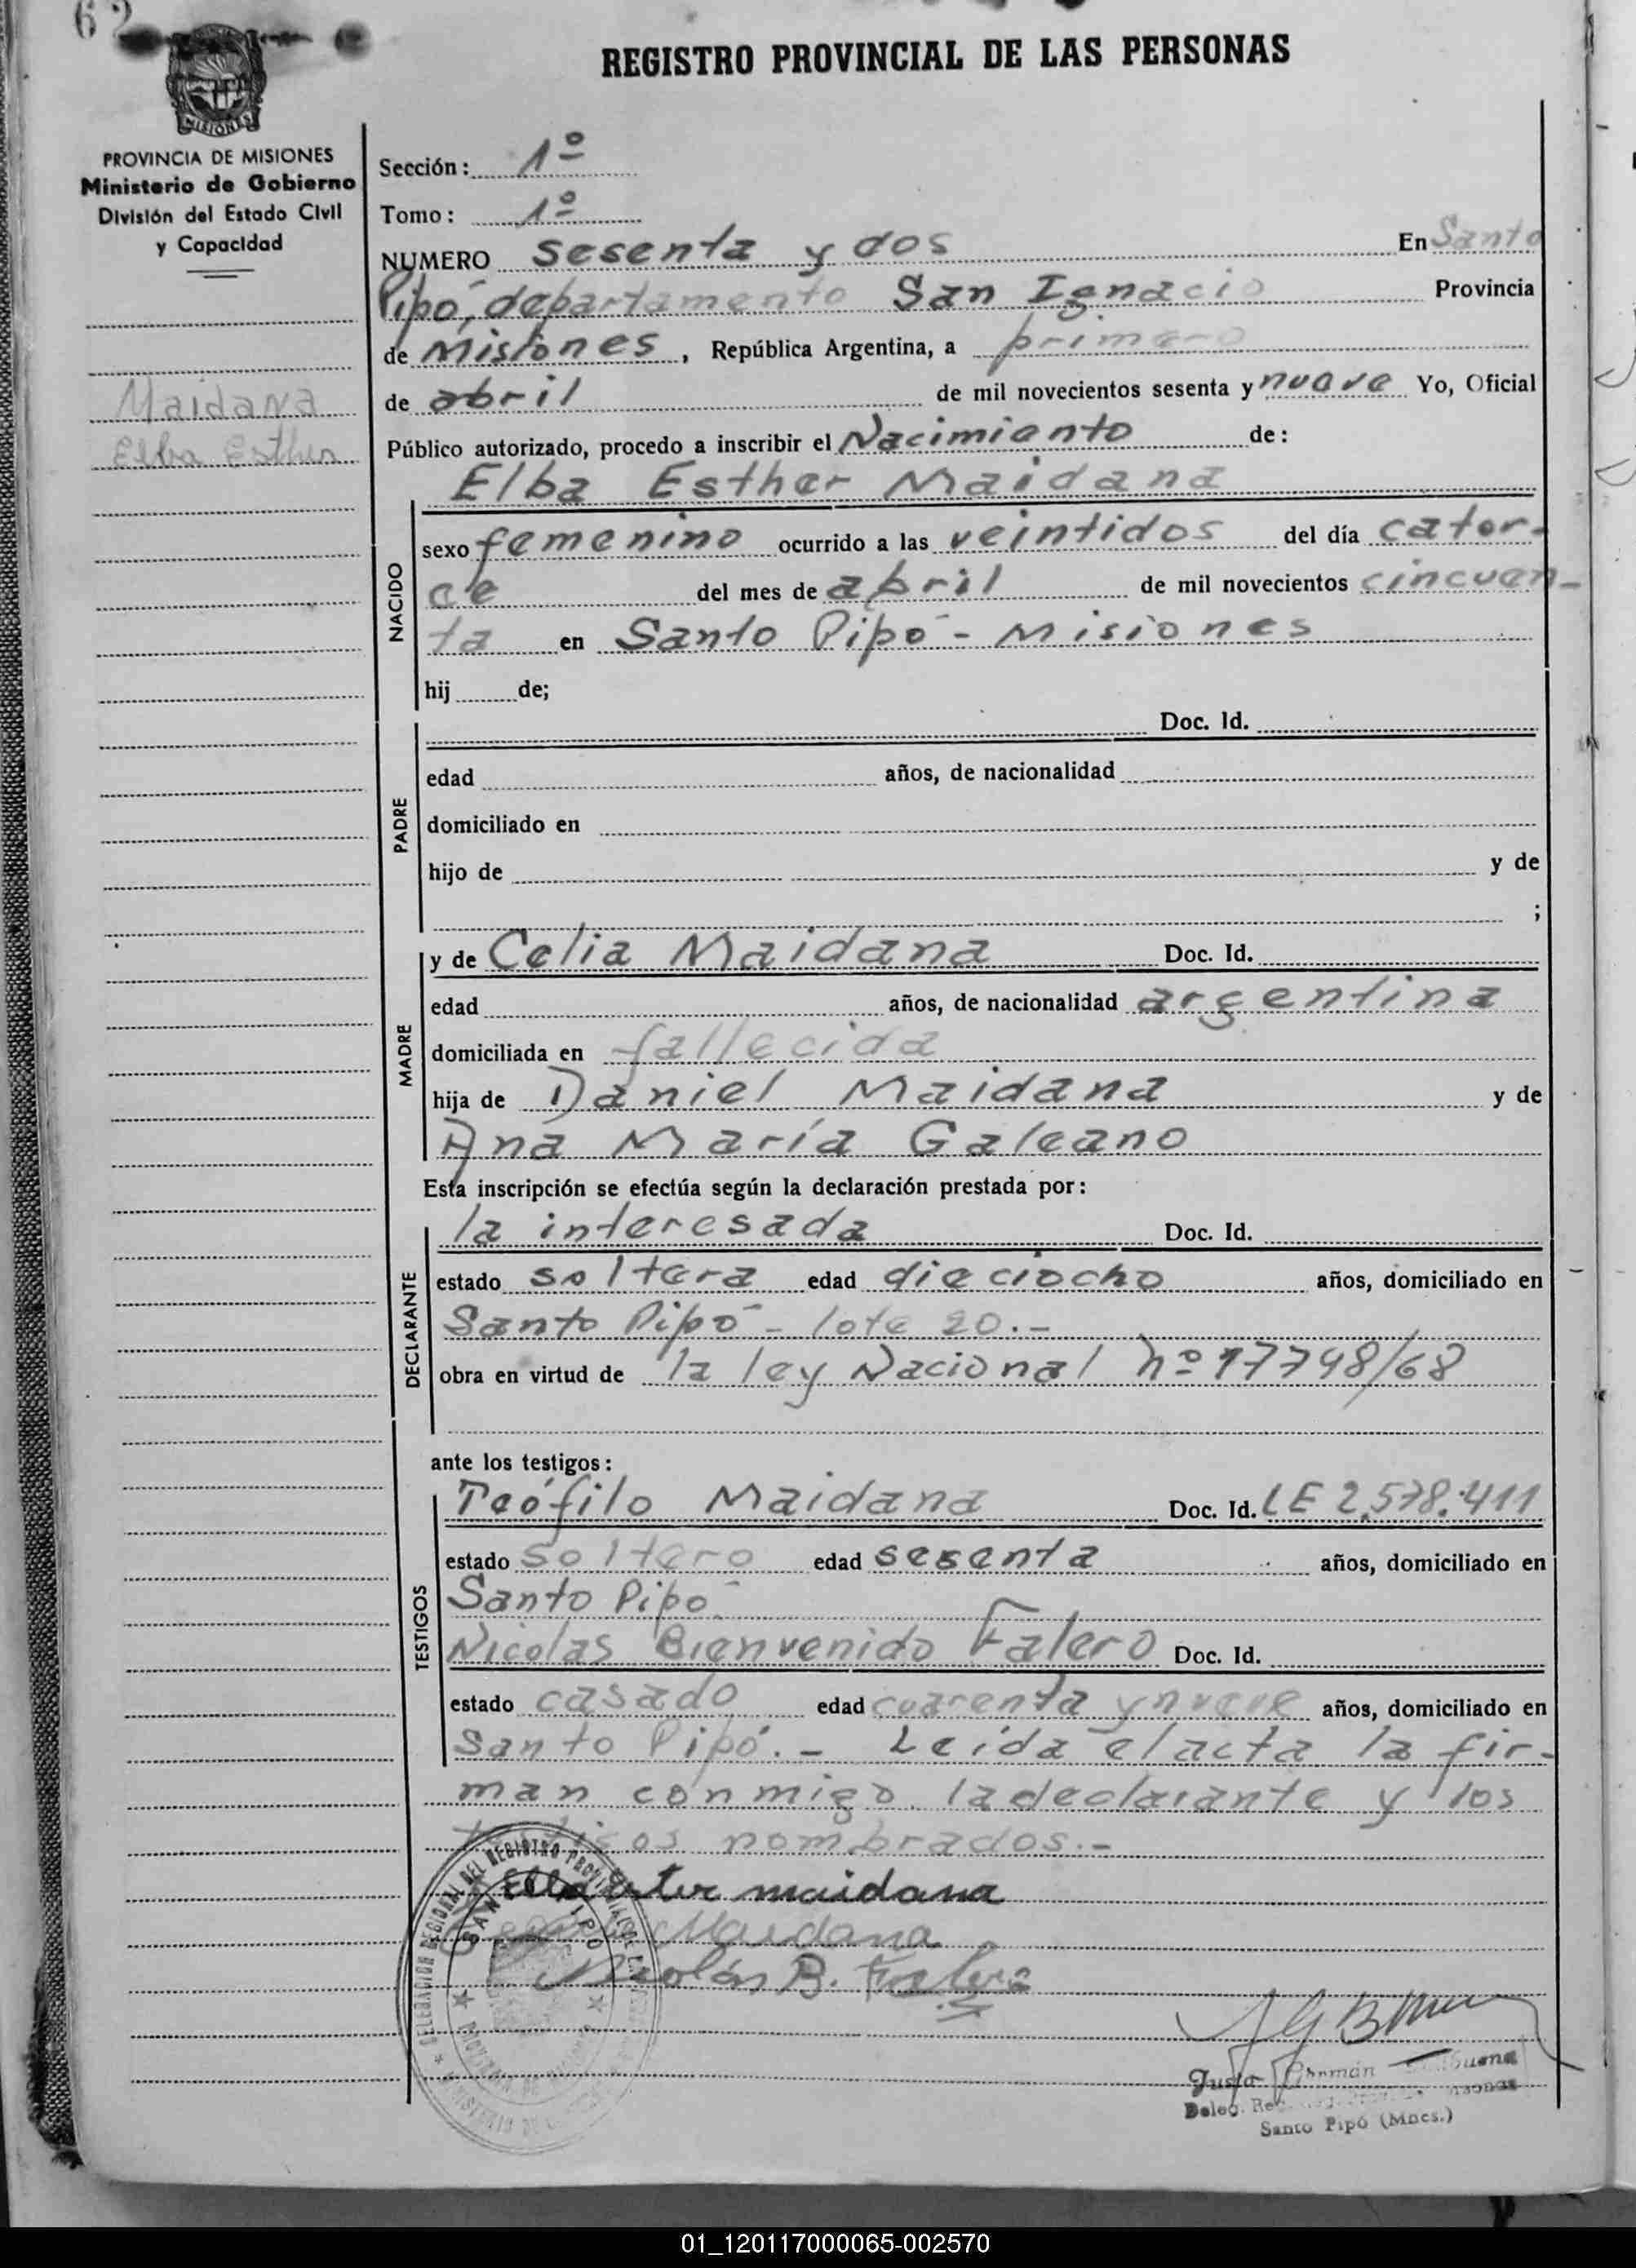 62
REGISTRO PROVINCIAL DE LAS PERSONAS
MISIONES
PROVINCIA DE MISIONES
Ministerio de Gobierno
División del Estado Civil
y Capacidad
Maidana
Elba Esther
Sección: 1º
Tomo: 1º
NUMERO sesenta y dos En Santo
Pipó, departamento San Ignacio Provincia
de Misiones, República Argentina, a primero
de abril de mil novecientos sesenta y nueve Yo, Oficial
Público autorizado, procedo a inscribir el Nacimiento de:
Elba Esther Maidana
NACIDO
sexo femenino ocurrido a las veintidos del día cator-
ce del mes de abril de mil novecientos cincuen-
ta en Santo Pipó - Misiones
hij de;
PADRE
Doc. Id.
edad años, de nacionalidad
domiciliado en
hijo de y de
;
MADRE
y de Celia Maidana Doc. Id.
edad años, de nacionalidad argentina
domiciliada en fallecida
hija de Daniel Maidana y de
Ana María Galeano
Esta inscripción se efectúa según la declaración prestada por:
DECLARANTE
la interesada Doc. Id.
estado soltera edad dieciocho años, domiciliado en
Santo Pipó - lote 20.-
obra en virtud de la ley Nacional nº 17748/68
ante los testigos:
TESTIGOS
Teófilo Maidana Doc. Id. LE 2.578.411
estado soltero edad sesenta años, domiciliado en
Santo Pipó
Nicolas Bienvenido Falero Doc. Id.
estado casado edad cuarenta y nueve años, domiciliado en
Santo Pipó.- Leída el acta la fir-
man conmigo la declarante y los
testigos nombrados.-
Ester maidana
Maidana
Nicolás B. Falero
Justo Germán
Deleg. Re
Santo Pipó (Mnes.)
01_120117000065-002570